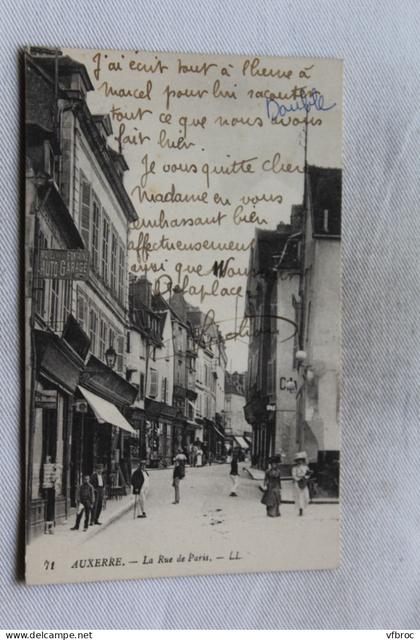 J'ai écrit tout à l'heure à
Marcel pour lui raconter
tout ce que nous avons
fait hier.
Double
Je vous quitte chère
Madame en vous
embrassant bien
affectueusement
ainsi que Monsieur
Delaplace
AUTO GARAGE
71 AUXERRE. — La Rue de Paris. — LL
vfbroc
delcampe.net
vfbroc